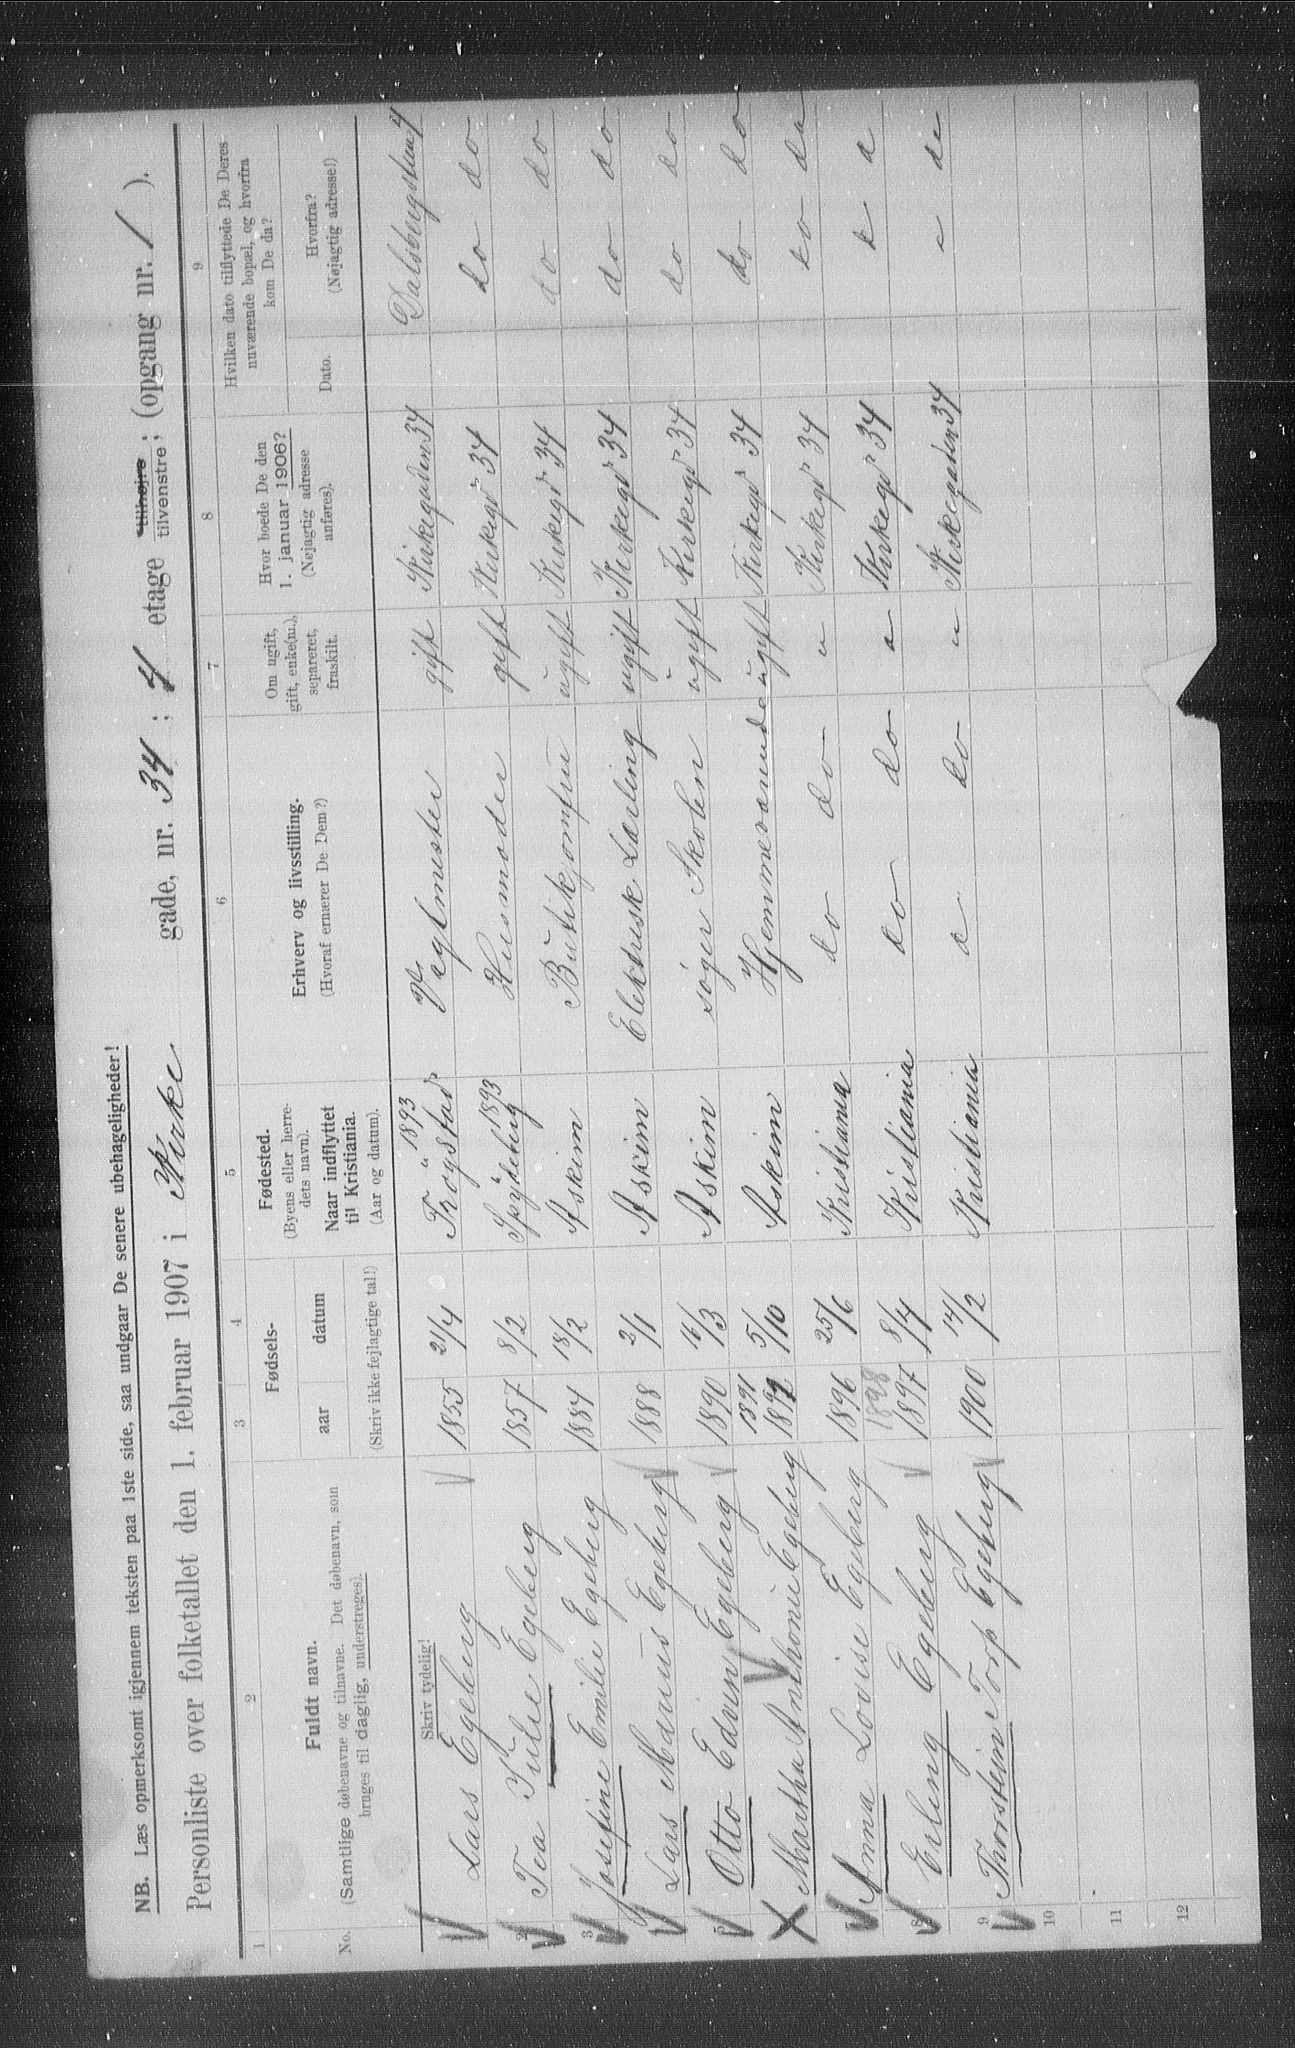 NB. Læs opmerksomt igjennem teksten paa 1ste side, saa undgaar De senere ubehageligheder!
Personliste over folketallet den 1. februar 1907 i Kirke gade, nr. 34 ; 4 etage tilhøjre tilvenstre ; (opgang nr. 1 ).
1 2 3 4 5 6 7 8 9
No.
Fuldt navn.
(Samtlige døbenavne og tilnavne. Det døbenavn, som
bruges til daglig, understreges).
Fødsels-
aar datum
(Skriv ikke fejlagtige tal!)
Fødested.
(Byens eller herre-
dets navn).
Naar indflyttet
til Kristiania.
(Aar og datum).
Erhverv og livsstilling.
(Hvoraf ernærer De Dem?)
Om ugift,
gift, enke(m.),
separeret,
fraskilt.
Hvor boede De den
1. januar 1906?
(Nøjagtig adresse
anføres).
Hvilken dato tilflyttede De Deres
nuværende bopæl, og hvorfra
kom De da?
Dato.
Hvorfra?
(Nøjagtig adresse!)
Skriv tydelig!
Lars Egeberg 1855 21/4 Trøgstad 1893 Vagtmester gift Kirkegaden 34 Dalsbergstien 4
2 Tea Julie Egeberg 1857 8/2 Spydeberg 1893 Husmoder gift Kirkegd 34 do do
3 Josefine Emilie Egeberg 1884 18/2 Askim Butikjomfru ugift Kirkegd 34 do do
Lars Marius Egeberg 1888 2/1 Askim Elektrisk Lærling ugift Kirkegd 34 do do
5 Otto Edvin Egeberg 1890 16/3 Askim søger Skolen ugift Kirkegd 34 do do
Martha Anthonie Egeberg 1891 1892 5/10 Askim Hjemmeværende ugift Kirkegd 34 do do
Anna Lovise Egeberg 1896 25/6 Kristiania do do u Kirkegd 34 do do
8 Erling Egeberg 1898 1897 8/4 Kristiania do do u Kirkegd 34
9 Thorstein Torp Egeberg 1900 14/2 Kristiania do u Kirkegaden 34
10
11
12